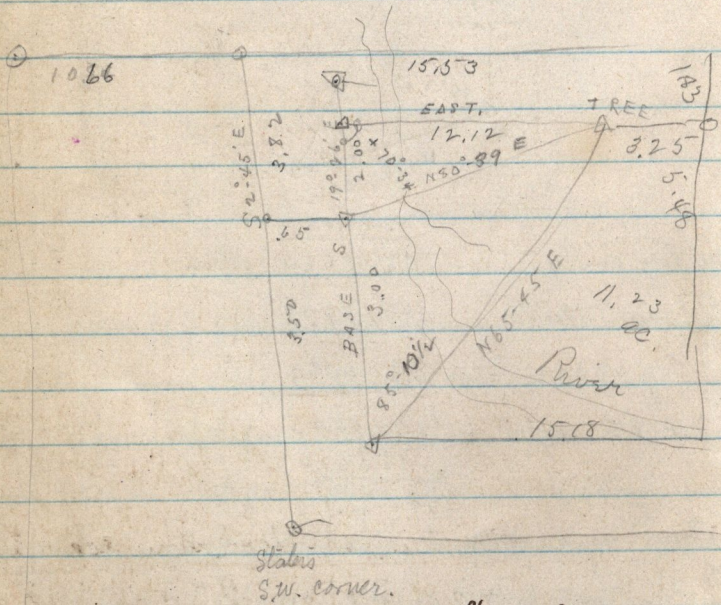 1066
15,53
1.83
EAST.
TREE
12.12
3.25
S 2°-45' E.
3.82
19°-26' E
2.00
70°-34
N80°-89 E
5.48
.65
S
BASE
3.00
3.50
85°-10 1/2
N65-45 E
11.23
ac.
River
15.18
S.W. corner.